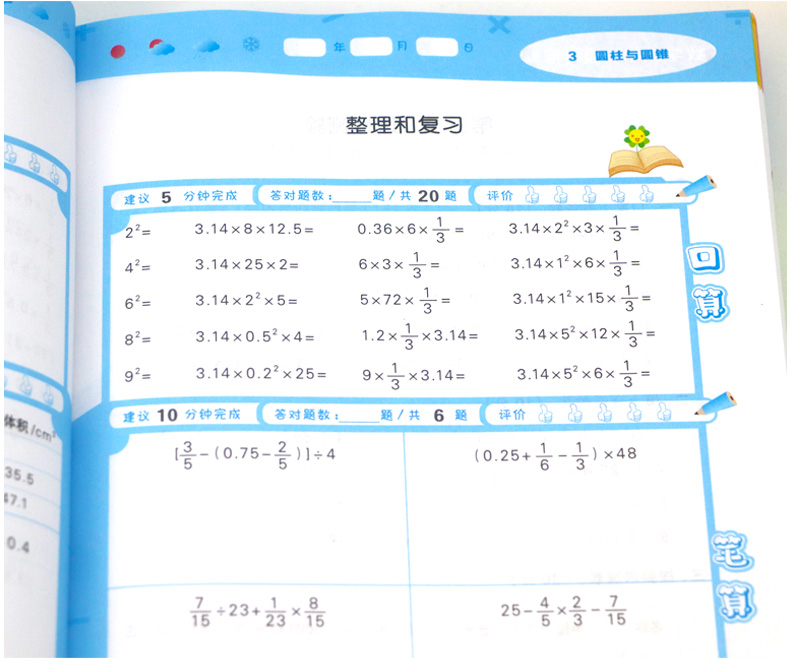 年 月 日
3 圆柱与圆锥
整理和复习
建议 5 分钟完成 答对题数:_____题/共 20 题 评价
2²= 3.14×8×12.5= 0.36×6×1/3= 3.14×2²×3×1/3=
4²= 3.14×25×2= 6×3×1/3= 3.14×1²×6×1/3=
6²= 3.14×2²×5= 5×72×1/3= 3.14×1²×15×1/3=
8²= 3.14×0.5²×4= 1.2×1/3×3.14= 3.14×5²×12×1/3=
9²= 3.14×0.2²×25= 9×1/3×3.14= 3.14×5²×6×1/3=
口算
建议 10 分钟完成 答对题数:_____题/共 6 题 评价
[3/5-(0.75-2/5)]÷4 (0.25+1/6-1/3)×48
7/15÷23+1/23×8/15 25-4/5×2/3-7/15
笔算
体积/cm³
35.5
47.1
0.4